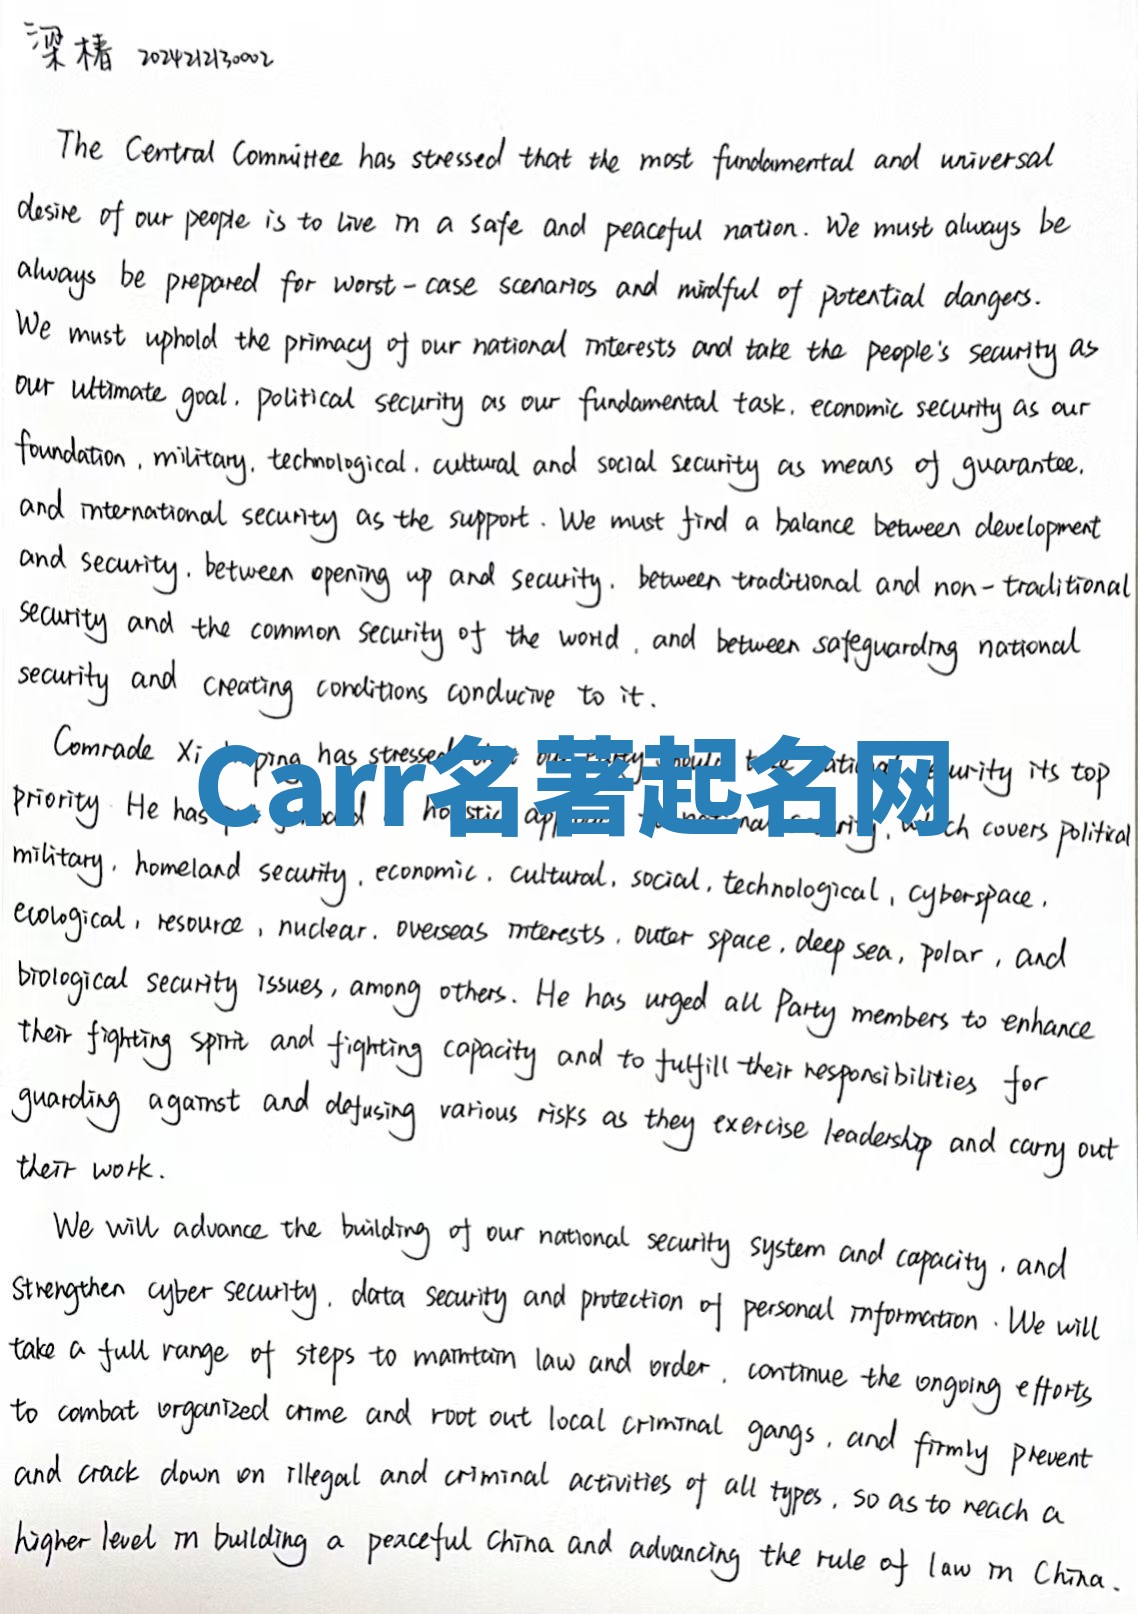 梁椿 2024212130002
The Central Committee has stressed that the most fundamental and universal
desire of our people is to live in a safe and peaceful nation. We must always be
always be prepared for worst-case scenarios and mindful of potential dangers.
We must uphold the primacy of our national interests and take the people's security as
our ultimate goal, political security as our fundamental task, economic security as our
foundation, military, technological, cultural and social security as means of guarantee,
and international security as the support. We must find a balance between development
and security, between opening up and security, between traditional and non-traditional
security and the common security of the world, and between safeguarding national
security and creating conditions conducive to it.
Comrade Xi has stressed its top
Carr名著起名网
priority. He has which covers political
military, homeland security, economic, cultural, social, technological, cyberspace,
ecological, resource, nuclear, overseas interests, outer space, deep sea, polar, and
biological security issues, among others. He has urged all Party members to enhance
their fighting spirit and fighting capacity and to fulfill their responsibilities for
guarding against and defusing various risks as they exercise leadership and carry out
their work.
We will advance the building of our national security system and capacity, and
strengthen cyber security, data security and protection of personal information. We will
take a full range of steps to maintain law and order, continue the ongoing efforts
to combat organized crime and root out local criminal gangs, and firmly prevent
and crack down on illegal and criminal activities of all types, so as to reach a
higher level in building a peaceful China and advancing the rule of law in China.